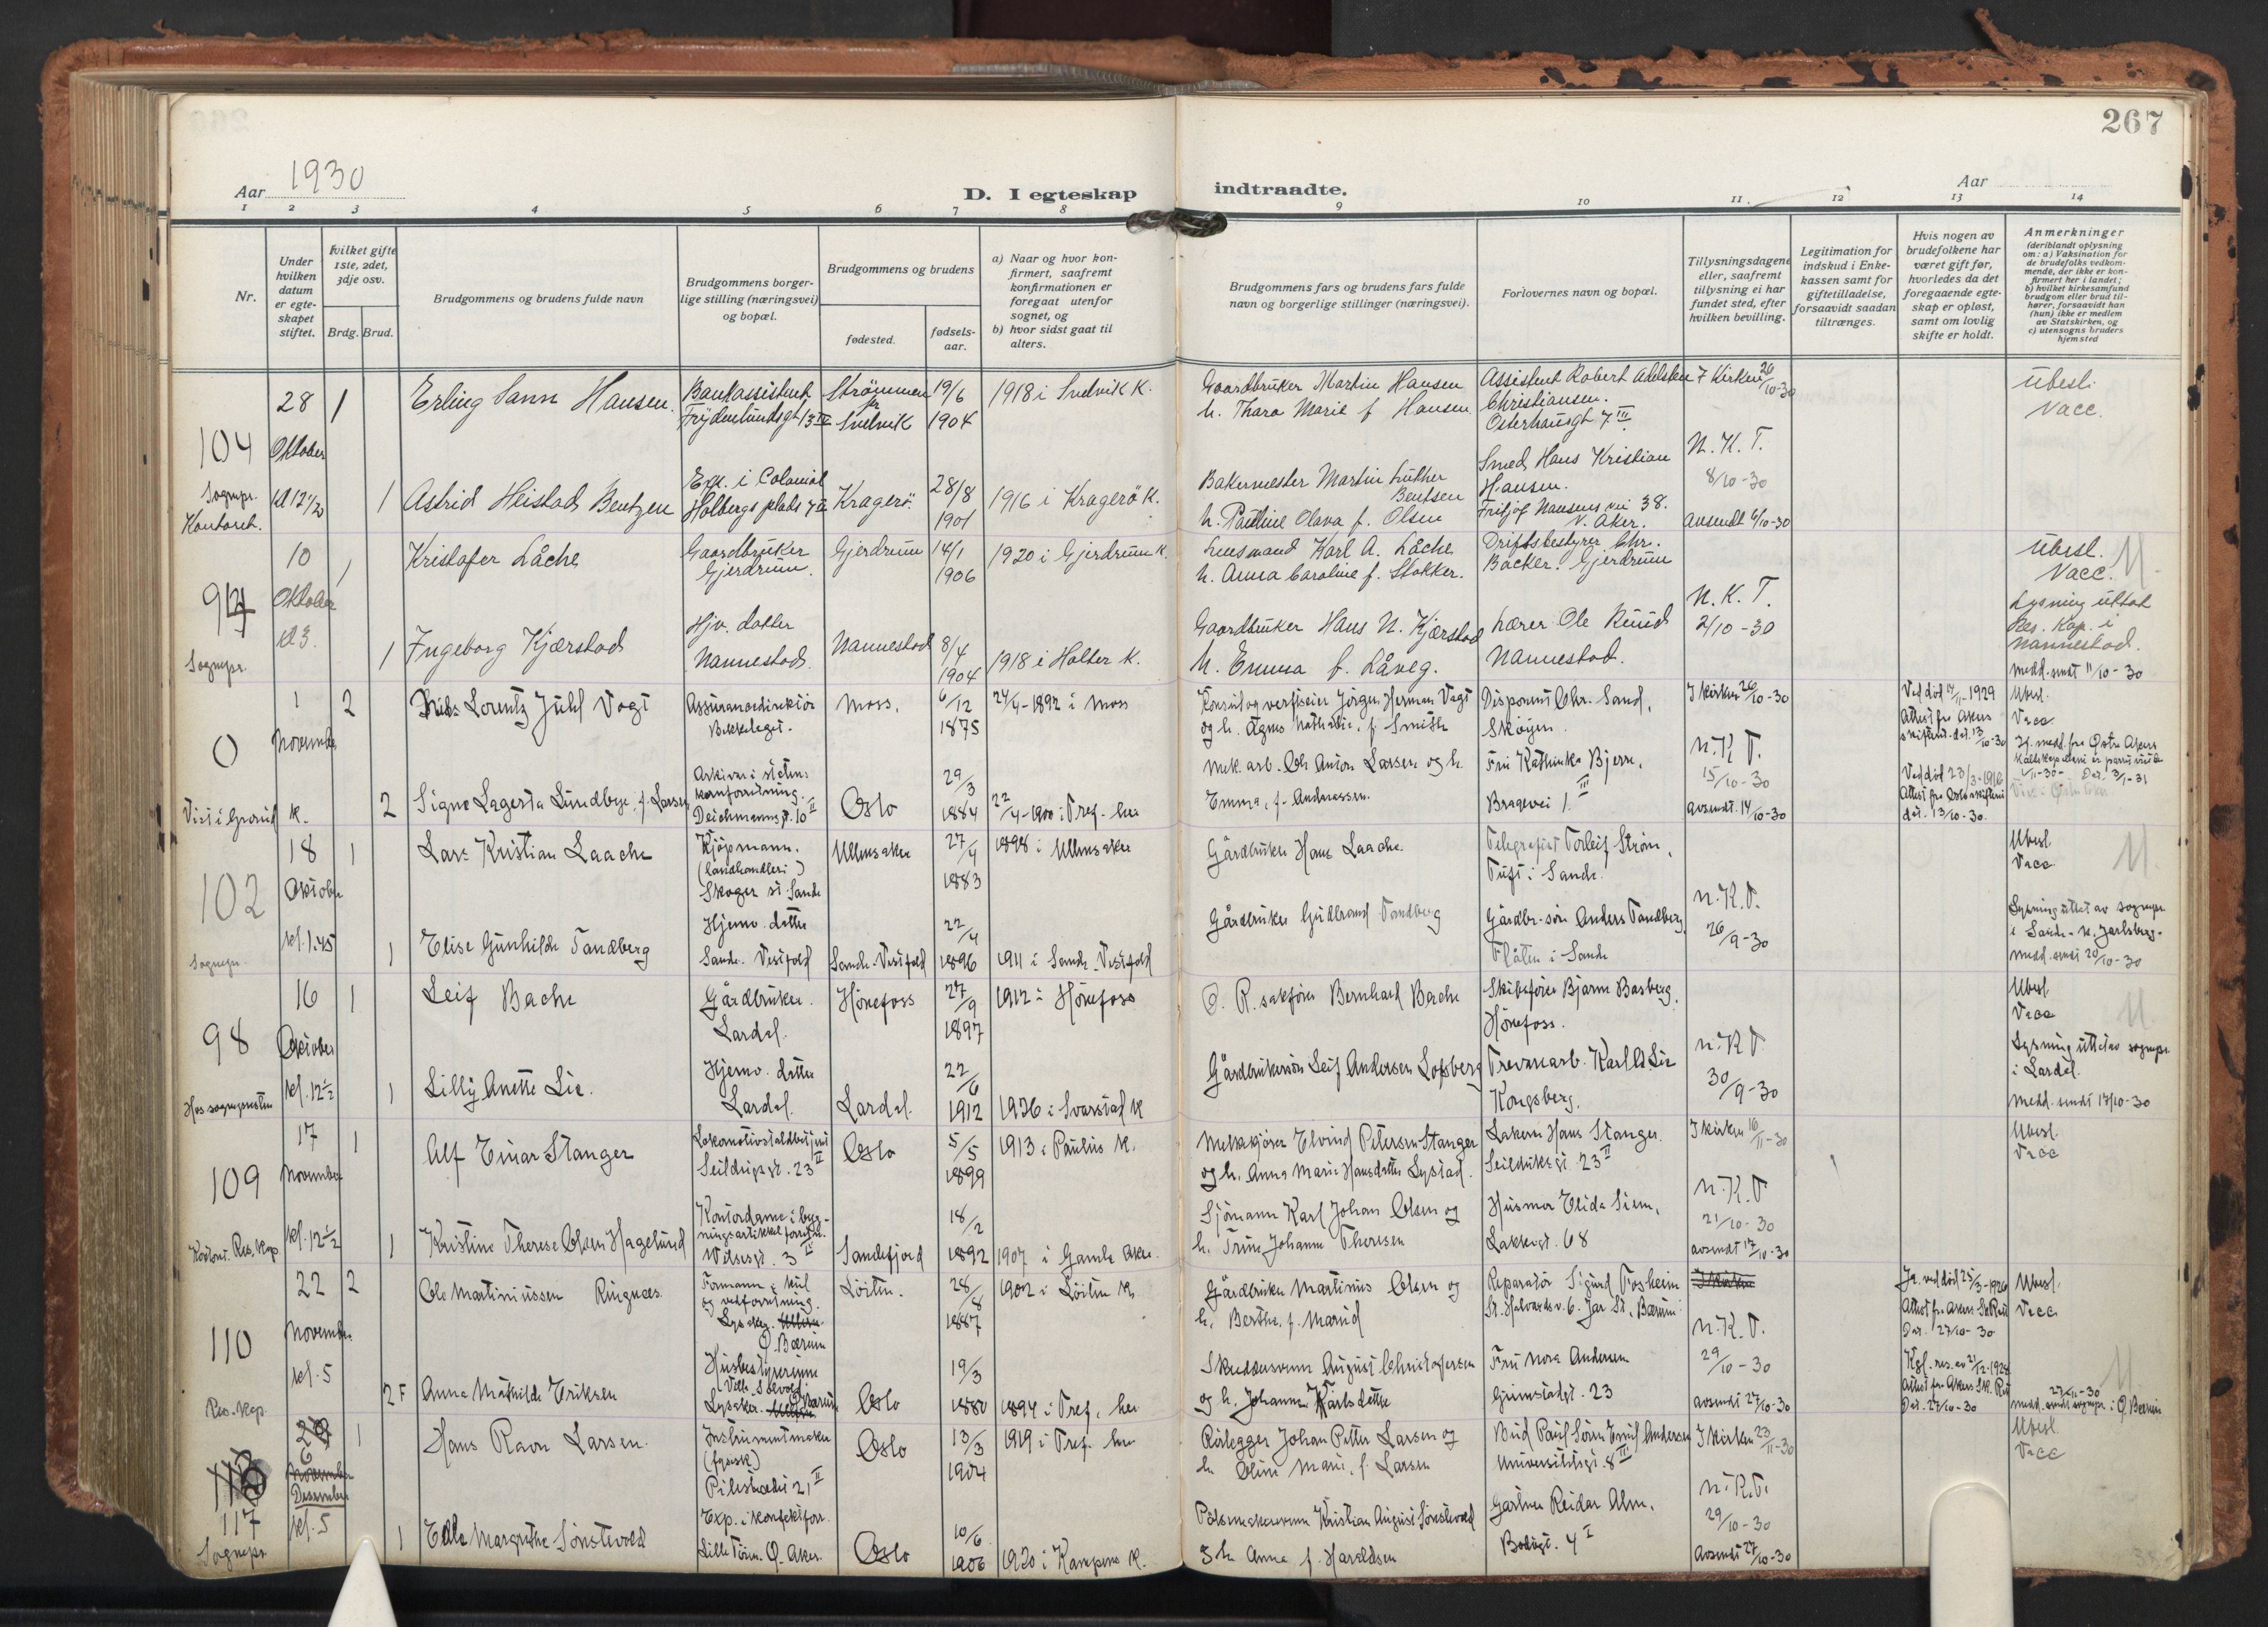 267
Aar 1930
D. I egteskap indtraadte.
Aar
1 2 3 4 5 6 7 8 9 10 11 12 13 14
Nr.
Under hvilken datum er egteskapet stiftet.
Hvilket gifte 1ste, 2det, 3dje osv.
Brdg. Brud.
Brudgommens og brudens fulde navn
Brudgommens borgerlige stilling (næringsvei) og bopæl.
Brudgommens og brudens
fødested.
fødselsaar.
a) Naar og hvor konfirmert, saafremt konfirmationen er foregaat utenfor sognet, og
b) hvor sidst gaat til alters.
Brudgommens fars og brudens fars fulde navn og borgerlige stillinger (næringsvei).
Forlovernes navn og bopæl.
Tillysningsdagene eller, saafremt tillysning ei har fundet sted, efter hvilken bevilling.
Legitimation for indskud i Enkekassen samt for giftetilladelse, forsaavidt saadan tiltrænges.
Hvis nogen av brudefolkene har været gift før, hvorledes da det foregaaende egteskap er opløst, samt om lovlig skifte er holdt.
Anmerkninger
(deriblandt oplysning om: a) Vaksination for de brudefolks vedkommende, der ikke er konfirmert her i landet; b) hvilket kirkesamfund brudgom eller brud tilhører, forsaavidt han (hun) ikke er medlem av Statskirken, og c) utensogns bruders hjemsted
104 28 Oktober kl 12 1/2 Sognepr. Kontoret.
1 Erling Sann Hansen. Bankassistent Frydenlundsgt 13 Strömmen pr Svelvik 19/6 1904 1918 i Svelvik K.
Gaardbruker Martin Hansen h. Thara Marie f Hansen
Assistent Robert Adelsten Christiansen. Osterhausgt 7 III
I Kirken 26/10-30
Ubesl. Vacc.
1 Astrid Heistad Bentzen Exp. i Colonial Holbergs plads Kragerö. 28/8 1901 1916 i Kragerö K.
Bakermester Martin Luther Bentsen h. Pauline Olava f. Olsen
Smed Hans Kristian Hansen. Fritjof Nansens vei 38. V. Aker.
N. K. T. 8/10-30 avsendt 6/10-30
94 10 Oktober kl 3. Sognepr.
1 Kristofer Låche Gaardbruker Gjerdrum. Gjerdrum 14/1 1906 1920 i Gjerdrum K.
Lensmand Karl A. Låche h. Anna Caroline f. Stokker.
Driftsbestyrer Chr. Backer. Gjerdrum
Ubesl. Vacc.
1 Ingeborg Kjærstad Hjv. datter Nannestad. Nannestad 8/4 1904 1918 i Holter K.
Gaardbruker Hans N. Kjærstad h. Emma f. Låveg.
Lærer Ole Ruud Nannestad.
N. K. T. 2/10-30
Lysning uttat Res. Kap. i Nannestad. medd. sendt 11/10-30
0 1 November K.
2 Lorentz Juhl Vogt Assurancedirektör Bekkelaget. Moss. 6/12 1875 24/4-1892 i Moss
Konsul og verftseier Jörgen Herman Vogt og h. Agnes Nathalie, f. Smith
Disponent Chr. Sand, Sköyen.
I kirken 26/10-30
Ved död 14/11-1929 Attest fra Akers skifterett dat. 13/10-30
Ubesl. Vacc.
2 Signe Lagerta Lundbye f. Larsen Deichmannsgt. 10 II Oslo 29/3 1884 22/4-1900 i Tref. her
Mek. arb. Ole Anton Larsen og h. Emma, f. Andreassen.
Fru Kathinka Bjerre, Bragevei 1. III
N. K T. 15/10-30 avsendt. 14/10-30
Ved död 23/3-1916 dat. 13/10-30.
102 18 Oktober kl. 1.45 Sognepr.
1 Lars Kristian Laache Kjöpmann. (landhandleri) Skoger st Sande Ullensaker 27/4 1883 1898 i Ullensaker
Gårdbruker Hans Laache.
Telegrafist Torleif Ström, Tuft i Sande.
Ubesl Vacc
1 Elise Gunhilde Tandberg Hjemv. datter Sande. Vestfold Sande. Vestfold 22/4 1896 1911 i Sande. Vestfold
Gårdbruker Gudbrand Tandberg
Gårdbr. sön Anders Tandberg, Flåten i Sande
N. K. T. 26/9-30
Lysning uttat av sognepr. i Sande - N. Jarlsberg. medd. sendt 20/10-30
98 16 Oktober kl. 12 1/2 Hos sognepresten
1 Leif Bache Gårdbruker. Lardal. Hönefoss 27/9 1897 1912 i Hönefoss
O. R. sakförer Bernhard Bache
Skibsförer Bjarne Basberg, Hönefoss.
Ubesl Vacc
1 Lilly Anette Lie. Hjemv. datter Lardal. Lardal. 22/6 1912 1926 i Svarstad K
Gårdbrukersön Leif Andersen Lofsberg
Trevarearb. Karl Lie Kongsberg.
N. K T 30/9-30
Lysning uttat av sognepr. i Lardal. Medd. sendt 17/10-30
109 17 November kl. 12 1/2 Kontoret. Res. kap.
1 Alf Einar Stanger Seildugsgt. 23 II Oslo 5/5 1899 1913 i Paulus K.
Melkekjörer Elvind Petersen Stanger og h. Anna Marie Hansdatter Lystad.
Lakerer Hans Stanger. Seilduksgt. 23 II
I kirken 16/11-30
Ubesl. Vacc
1 Kristine Therese Olsen Hagelund Kontordame i bygningsartikkel forretn. Sandefjord 18/2 1892 1907 i Gamle Aker.
Sjömann Karl Johan Olsen og h. Trine Johanne Theresen
Husmor Elida Siem, Lakkegt. 68
N. K. T 21/10-30 avsendt 17/10-30
110 22 November kl. 5 Res. kap.
2 Ole Martiniussen Ringnes. Formann i kul og vedforretning. Lysaker. Ö. Bærum Löiten. 28/8 1887 1902 i Löiten K.
Gårdbruker Martinius Olsen og h. Berthe, f. Marud
Reparatör Sigurd Fosheim St. Halvardsv. 6. Jar St. Bærum.
I kirken
Ja. ved död 25/3-1926 Dat. 27/10-30
Ubesl. Vacc
2 F Anna Mathilde Eriksen Husbestyrerinne Lysaker. Ö. Bærum Oslo 19/3 1880 1894 i Tref. her
August Christofersen og h. Johanne Karlsdatter
Fru Nora Andersen Grimstadgt. 23
N. K. T. 29/10-30 avsendt 27/10-30
Kgl. res. av 21/12-1928 Dat. 27/10-30
117 6 November Desember kl. 5 Sognepr.
1 Hans Ravn Larsen. Instrumentmaker (fysisk) Pilestredet 21 II Oslo 13/3 1904 1919 i Tref. her
Rörlegger Johan Petter Larsen og h. Oline Marie, f. Larsen
Bud Paul Sören Emil Andersen Universitetsgt. 8 III
I kirken 23/11-30
Ubesl Vacc
1 Ella Margrethe Sönstevold Exp. i konfektforr. Lille Töien. Ö. Aker. Oslo 10/6 1906 1920 i Kampens K.
Pölsemakersvenn Kristian August Sönstevold g h. Anna f. Haraldsen
Gartner Reidar Alm. Bodögt. 4 I
N. K. T. 29/10-30 avsendt 27/10-30